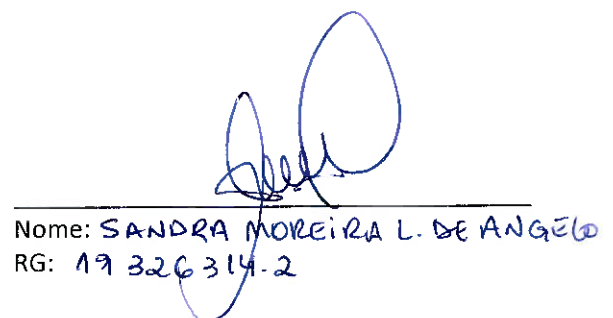 Nome: SANDRA MOREIRA L. DE ANGELO
RG: 19 326 314-2